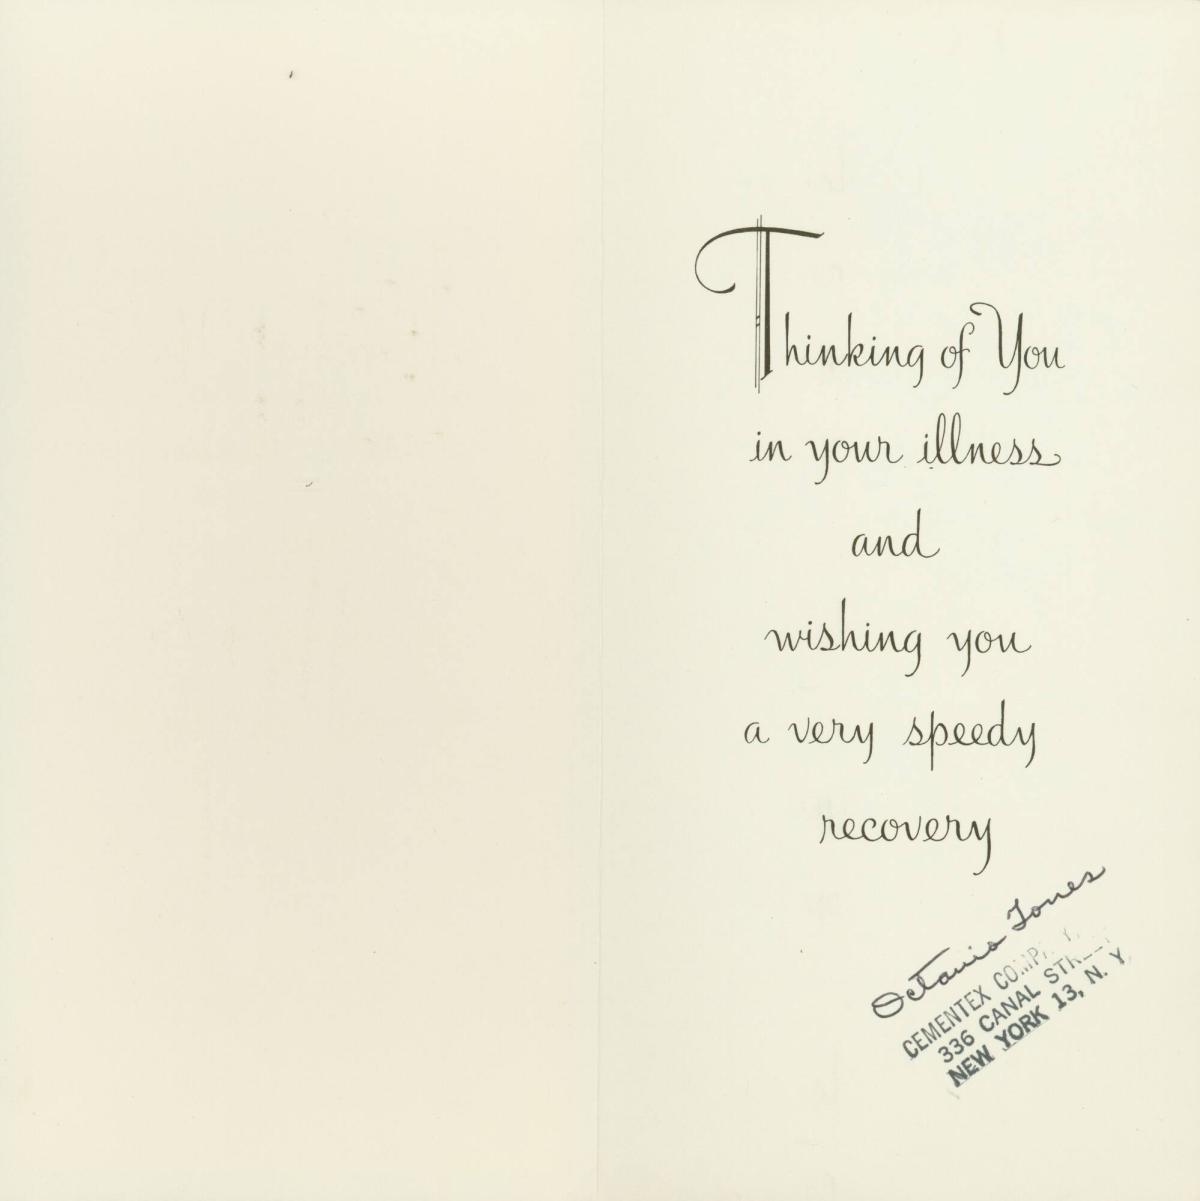 Thinking of You
in your illness
and
wishing you
a very speedy
recovery
Octavia Jones
CEMENTEX COMPANY
336 CANAL STREET
NEW YORK 13, N. Y.